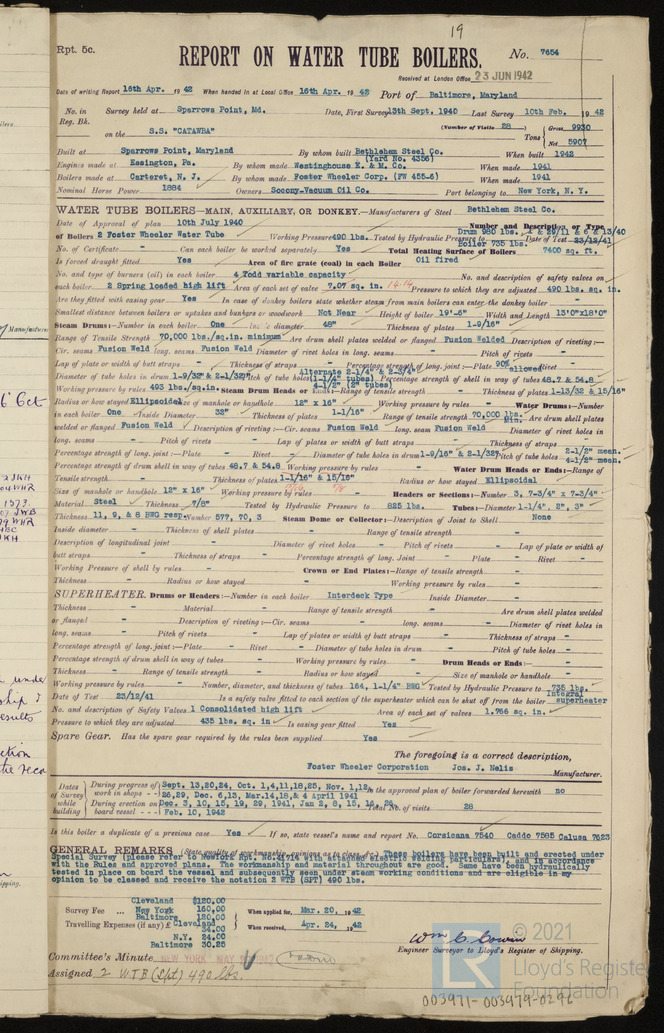 19
Rpt. 5c.
REPORT ON WATER TUBE BOILERS.
No. 7654
Received at London Office 23 JUN 1942
Date of writing Report 16th Apr. 1942 When handed in at Local Office 16th Apr. 1942 Port of Baltimore, Maryland
No. in Survey held at Sparrows Point, Md. Date, First Survey 13th Sept. 1940 Last Survey 10th Feb. 1942
Reg. Bk. (Number of Visits 28 )
on the S.S. "CATAWBA" Tons Gross 9930
Net 5907
Built at Sparrows Point, Maryland By whom built Bethlehem Steel Co. (Yard No. 4356) When built 1942
Engines made at Essington, Pa. By whom made Westinghouse E. & M. Co. When made 1941
Boilers made at Carteret, N. J. By whom made Foster Wheeler Corp. (FW 455-6) When made 1941
Nominal Horse Power 1884 Owners Socony-Vacuum Oil Co. Port belonging to New York, N. Y.
WATER TUBE BOILERS—MAIN, AUXILIARY, OR DONKEY.—Manufacturers of Steel Bethlehem Steel Co.
Date of Approval of plan 10th July 1940 Number and Description or Type
of Boilers 2 Foster Wheeler Water Tube Working Pressure 490 lbs. Tested by Hydraulic Pressure to Drum 980 lbs. Boiler 735 lbs. Date of Test 23/12/41
No. of Certificate - Can each boiler be worked separately Yes Total Heating Surface of Boilers 7400 sq. ft.
Is forced draught fitted Yes Area of fire grate (coal) in each Boiler Oil fired
No. and type of burners (oil) in each boiler 4 Todd variable capacity No. and description of safety valves on
each boiler 2 Spring loaded high lift Area of each set of valve 7.07 sq. in. 14.14 Pressure to which they are adjusted 490 lbs. sq. in.
Are they fitted with easing gear Yes In case of donkey boilers state whether steam from main boilers can enter the donkey boiler -
Smallest distance between boilers or uptakes and bunkers or woodwork Not Near Height of boiler 19'-6" Width and Length 13'0"x18'0"
Steam Drums:—Number in each boiler One Inside diameter 48" Thickness of plates 1-9/16"
Range of Tensile Strength 70,000 lbs./sq.in. minimum Are drum shell plates welded or flanged Fusion Welded Description of riveting:—
Cir. seams Fusion Weld long. seams Fusion Weld Diameter of rivet holes in long. seams - Pitch of rivets -
Lap of plate or width of butt straps - Thickness of straps - Percentage strength of long. joint:—Plate 90% allowed Rivet -
Diameter of tube holes in drum 1-9/32" & 2-1/32" Pitch of tube holes Alternate 2-1/4" & 2-3/4" (1-1/4" tubes) 4-1/2" (2" tubes) Percentage strength of shell in way of tubes 48.7 & 54.8
Working pressure by rules 493 lbs/sq.in. Steam Drum Heads or Ends:—Range of tensile strength - Thickness of plates 1-13/32 & 15/16"
Radius or how stayed Ellipsoidal Size of manhole or handhole 12" x 16" Working pressure by rules - Water Drums:—Number
in each boiler One Inside Diameter 32" Thickness of plates 1-1/16" Range of tensile strength 70,000 lbs. Min. Are drum shell plates
welded or flanged Fusion Weld Description of riveting:—Cir. seams Fusion Weld long. seam Fusion Weld Diameter of rivet holes in
long. seams - Pitch of rivets - Lap of plates or width of butt straps - Thickness of straps -
Percentage strength of long. joint:—Plate - Rivet - Diameter of tube holes in drum 1-9/16" & 2-1/32" Pitch of tube holes 2-1/2" mean. 4-1/2" mean.
Percentage strength of drum shell in way of tubes 48.7 & 54.8 Working pressure by rules - Water Drum Heads or Ends:—Range of
Tensile strength - Thickness of plates 1-1/16" & 15/16" Radius or how stayed Ellipsoidal
Size of manhole or handhole 12" x 16" Working pressure by rules - Headers or Sections:—Number 3, 7-3/4" x 7-3/4"
Material Steel Thickness 7/8" Tested by Hydraulic Pressure to 825 lbs. Tubes:—Diameter 1-1/4", 2", 3"
Thickness 11, 9, & 8 BWG resp. Number 577, 70, 3 Steam Dome or Collector:—Description of Joint to Shell None
Inside diameter - Thickness of shell plates - Range of tensile strength -
Description of longitudinal joint - Diameter of rivet holes - Pitch of rivets - Lap of plate or width of
butt straps - Thickness of straps - Percentage strength of long. Joint - Plate - Rivet -
Working Pressure of shell by rules - Crown or End Plates:—Range of tensile strength -
Thickness - Radius or how stayed - Working pressure by rules -
SUPERHEATER. Drums or Headers:—Number in each boiler Interdeck Type Inside Diameter -
Thickness - Material - Range of tensile strength - Are drum shell plates welded
or flanged - Description of riveting:—Cir. seams - long. seams - Diameter of rivet holes in
long. seams - Pitch of rivets - Lap of plates or width of butt straps - Thickness of straps -
Percentage strength of long. joint:—Plate - Rivet - Diameter of tube holes in drum - Pitch of tube holes -
Percentage strength of drum shell in way of tubes - Working pressure by rules - Drum Heads or Ends:—
Thickness - Range of tensile strength - Radius or how stayed - Size of manhole or handhole -
Working pressure by rules - Number, diameter, and thickness of tubes 164, 1-1/4" BWG Tested by Hydraulic Pressure to 735 lbs.
Date of Test 23/12/41 Is a safety valve fitted to each section of the superheater which can be shut off from the boiler Integral superheater
No. and description of Safety Valves 1 Consolidated high lift Area of each set of valves 1.766 sq. in.
Pressure to which they are adjusted 435 lbs. sq. in Is easing gear fitted Yes
Spare Gear. Has the spare gear required by the rules been supplied Yes
The foregoing is a correct description,
Foster Wheeler Corporation Jos. J. Nelis
Manufacturer.
Dates of Survey while building
During progress of work in shops - - Sept. 13,20,24, Oct. 1,4,11,18,25, Nov. 1,12, 26,29, Dec. 6,13, Mar.14,18,& 4 April 1941
Is the approved plan of boiler forwarded herewith no
During erection on board vessel - - - Dec. 3, 10, 15, 19, 29, 1941, Jan 2, 8, 15, 16, 28, Feb. 10, 1942
Total No. of visits 28
Is this boiler a duplicate of a previous case Yes If so, state vessel's name and report No. Corsicana 7540 Caddo 7585 Calusa 7623
GENERAL REMARKS (State quality of workmanship, opinions as to class, &c.) These boilers have been built and erected under
Special Survey (please refer to NewYork Rpt. No.41714 with attached electric welding particulars), and in accordance
with the Rules and approved plans. The workmanship and material throughout are good. Same have been hydraulically
tested in place on board the vessel and subsequently seen under steam working conditions and are eligible in my
opinion to be classed and receive the notation 2 WTB (SPT) 490 lbs.
Survey Fee ... Cleveland $120.00
New York 160.00
Baltimore 120.00
When applied for, Mar. 20, 1942
Travelling Expenses (if any) £ Cleveland 34.00
N.Y. 24.00
Baltimore 30.25
When received, Apr. 24, 1942
Engineer Surveyor to Lloyd's Register of Shipping.
Committee's Minute NEW YORK MAY
Assigned 2 W.T.B (Spt) 490 lbs.
© 2021
Lloyd's Register
Foundation
LR
003971-003979-0296